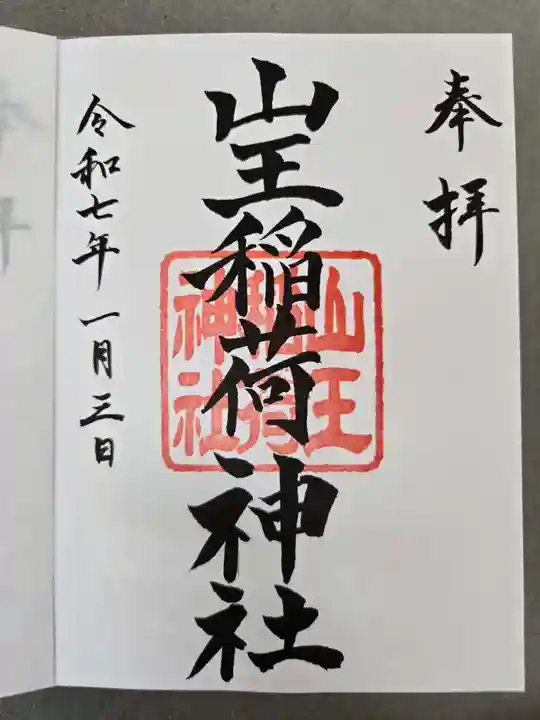 奉拝
山王稲荷神社
山王
稲荷
神社
令和七年一月三日